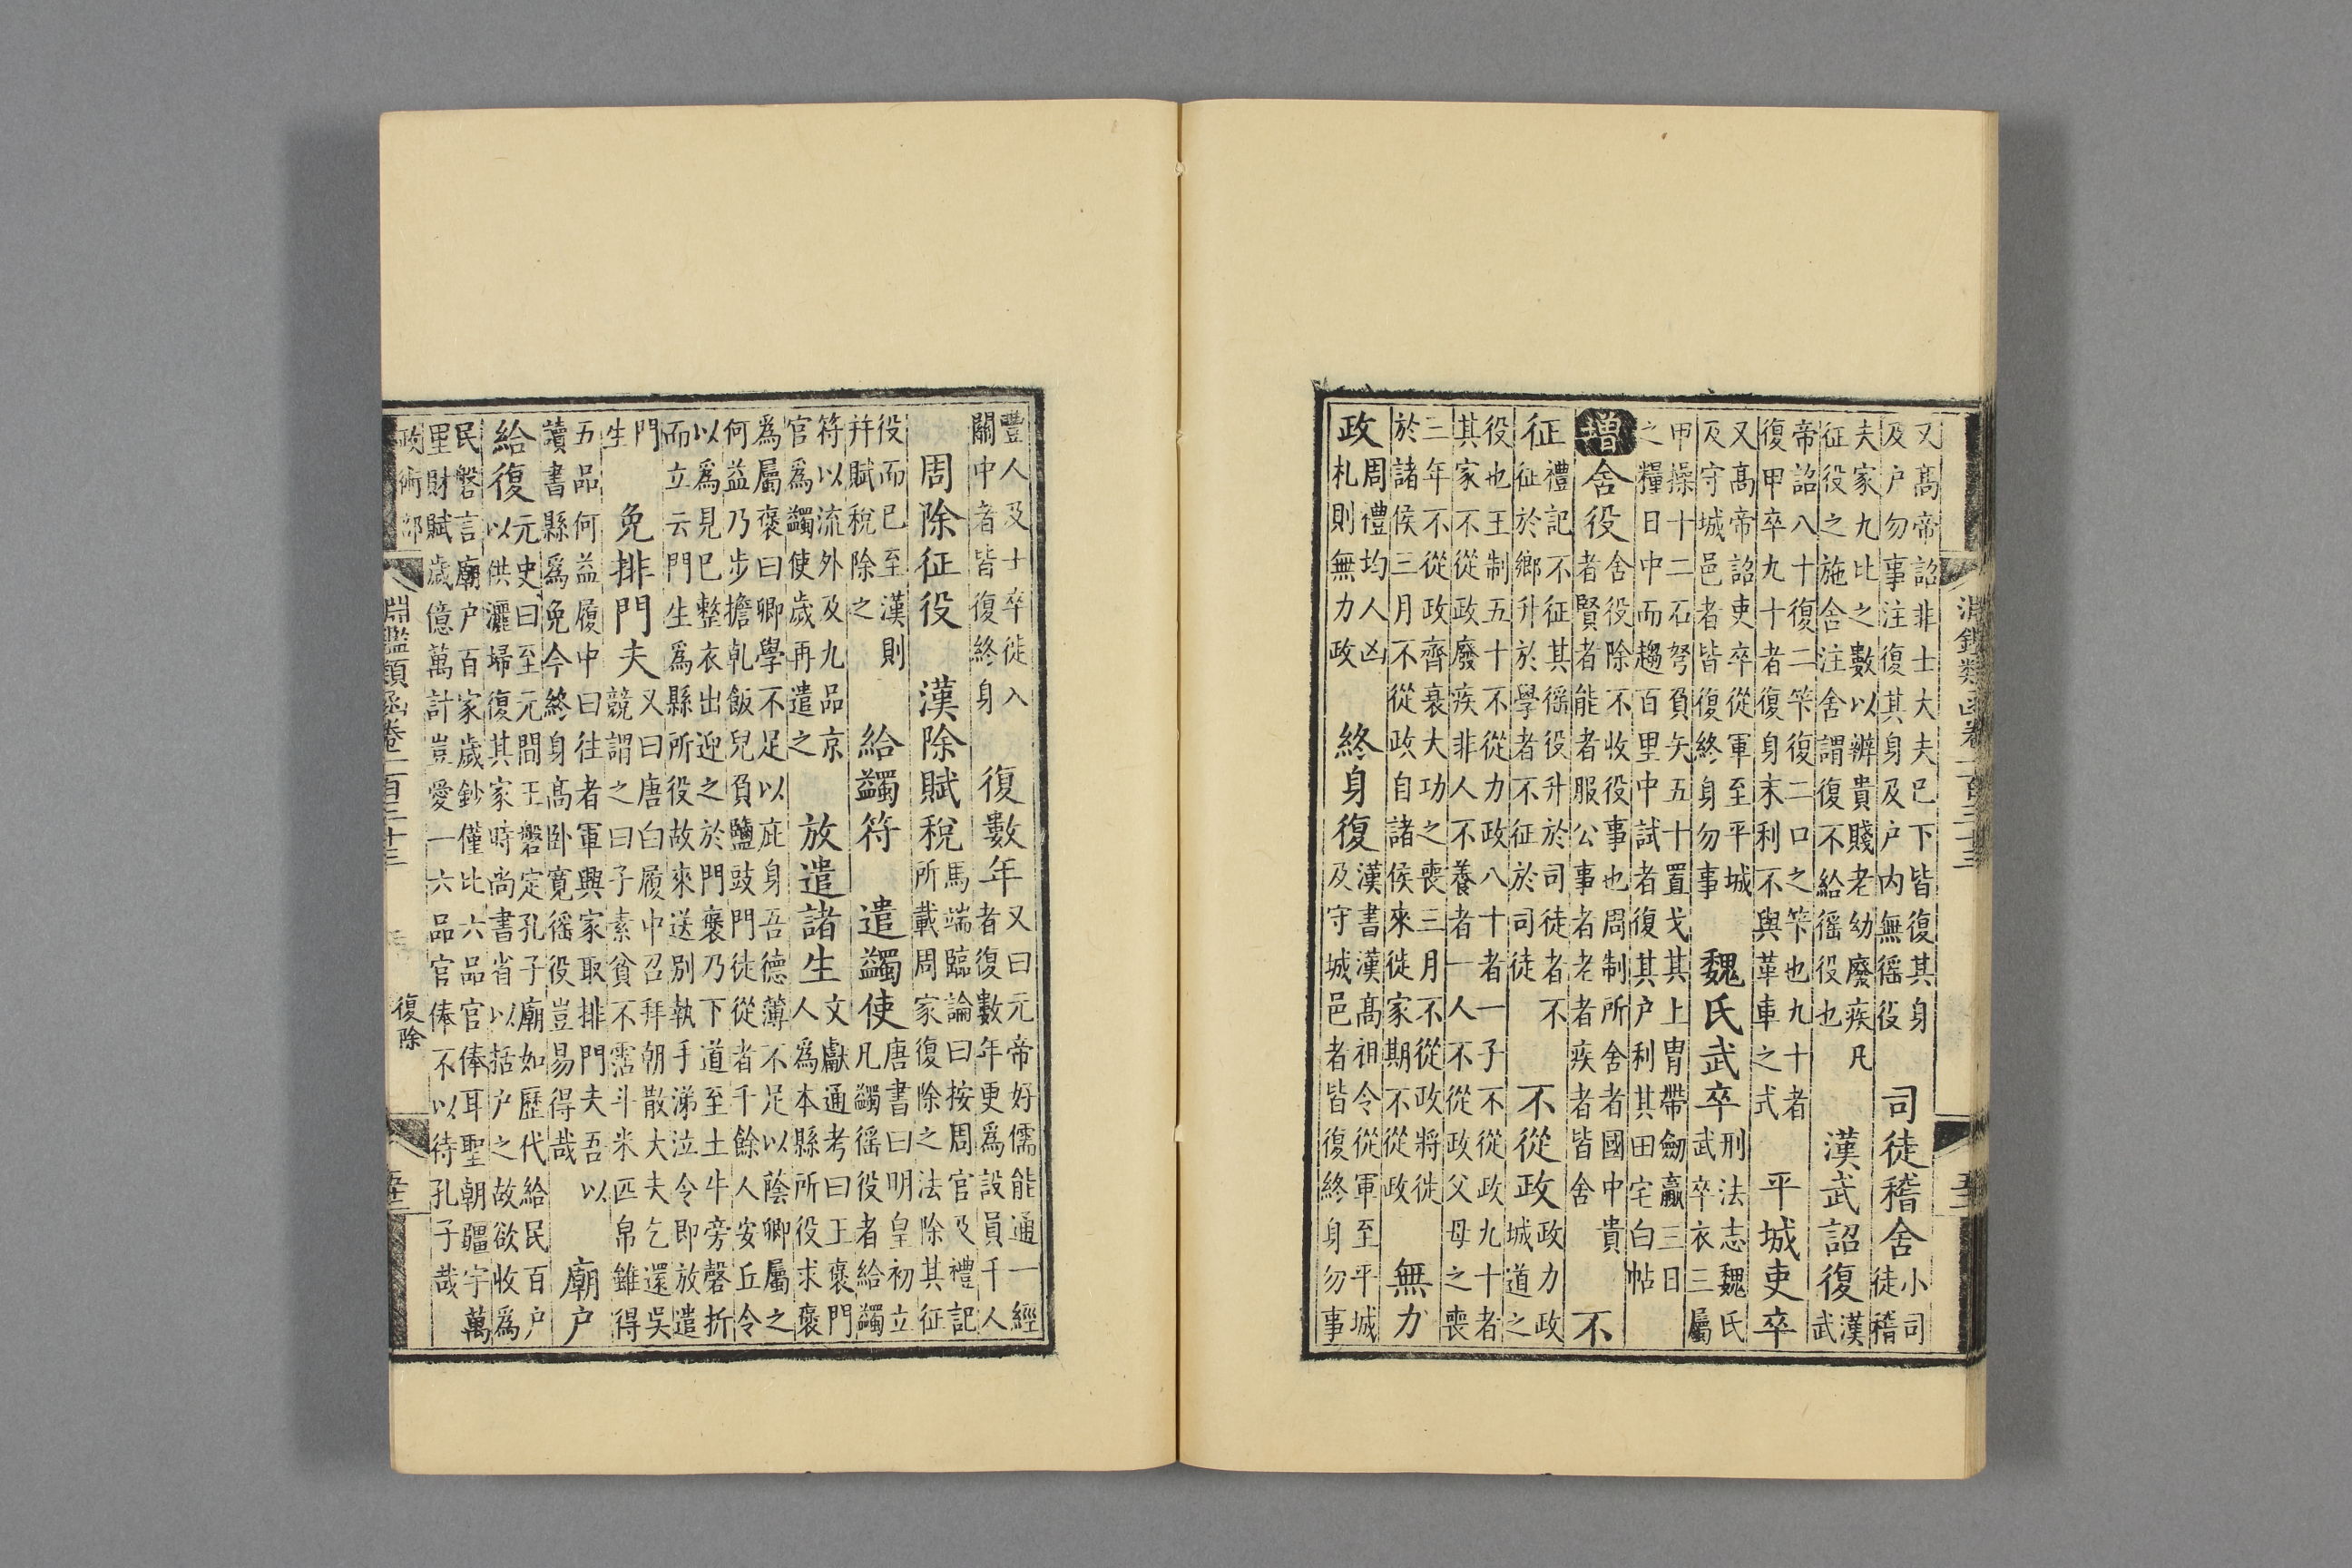 又高帝詔非士大夫已下皆復其身
及户勿事注復其身及户内無徭役
司徒稽舍
小司
徒稽
夫家九比之數以辨貴賤老幼廢疾凡
征役之施舍注舍謂復不給徭役也
漢武詔復
漢
武
帝詔八十復二筭復二口之筭也九十者
復甲卒九十者復身末利不與革車之式
平城吏卒
又高帝詔吏卒從軍至平城
及守城邑者皆復終身勿事
魏氏武卒
刑法志魏氏
武卒衣三屬
甲操十二石弩負矢五十置戈其上胄帶劒贏三日
之糧日中而趨百里中試者復其户利其田宅白帖
增
舍役
舍役除不收役事也周制所舍者國中貴
者賢者能者服公事者老者疾者皆舍
不
征
禮記不征其徭役升於司徒者不
征於鄉升於學者不征於司徒
不從政
政力政
城道之
役也王制五十不從力政八十者一子不從政九十者
其家不從政廢疾非人不養者一人不從政父母之喪
三年不從政齊衰大功之喪三月不從政將徙
於諸侯三月不從政自諸侯來徙家期不從政
無力
政
周禮均人凶
札則無力政
終身復
漢書漢高祖令從軍至平城
及守城邑者皆復終身勿事
豐人及士卒徙入
關中者皆復終身
復數年
又曰元帝好儒能通一經
者復數年更爲設員千人
周除征役
漢除賦稅
馬端臨論曰按周官及禮記
所載周家復除之法除其征
役而已至漢則
并賦稅除之
給蠲符
遣蠲使
唐書曰明皇初立
凡蠲徭役者給蠲
符以流外及九品京
官爲蠲使歲再遣之
放遣諸生
文獻通考曰王裒門
人爲本縣所役求裒
爲屬裒曰卿學不足以庇身吾德薄不足以蔭卿屬之
何益乃步擔乹飯兒負鹽豉門徒從者千餘人安丘令
以爲見已整衣出迎之於門裒乃下道至土牛旁磬折
而立云門生爲縣所役故來送别執手涕泣令即放遣
門
生
免排門夫
又曰唐白履中召拜朝散大夫乞還吳
競謂之曰子素貧不霑斗米匹帛雖得
五品何益履中曰往者軍興家取排門夫吾以
讀書縣爲免今終身高卧寛徭役豈易得哉
廟户
給復
元史曰至元間王磐定孔子廟如歷代給民百户
以供灑埽復其家時尚書省以括户之故欲收爲
民磐言廟户百家歲鈔僅比六品官俸耳聖朝疆宇萬
里財賦歲億萬計豈愛一六品官俸不以待孔子哉
政術部
淵鑑類函卷一百三十三
復除